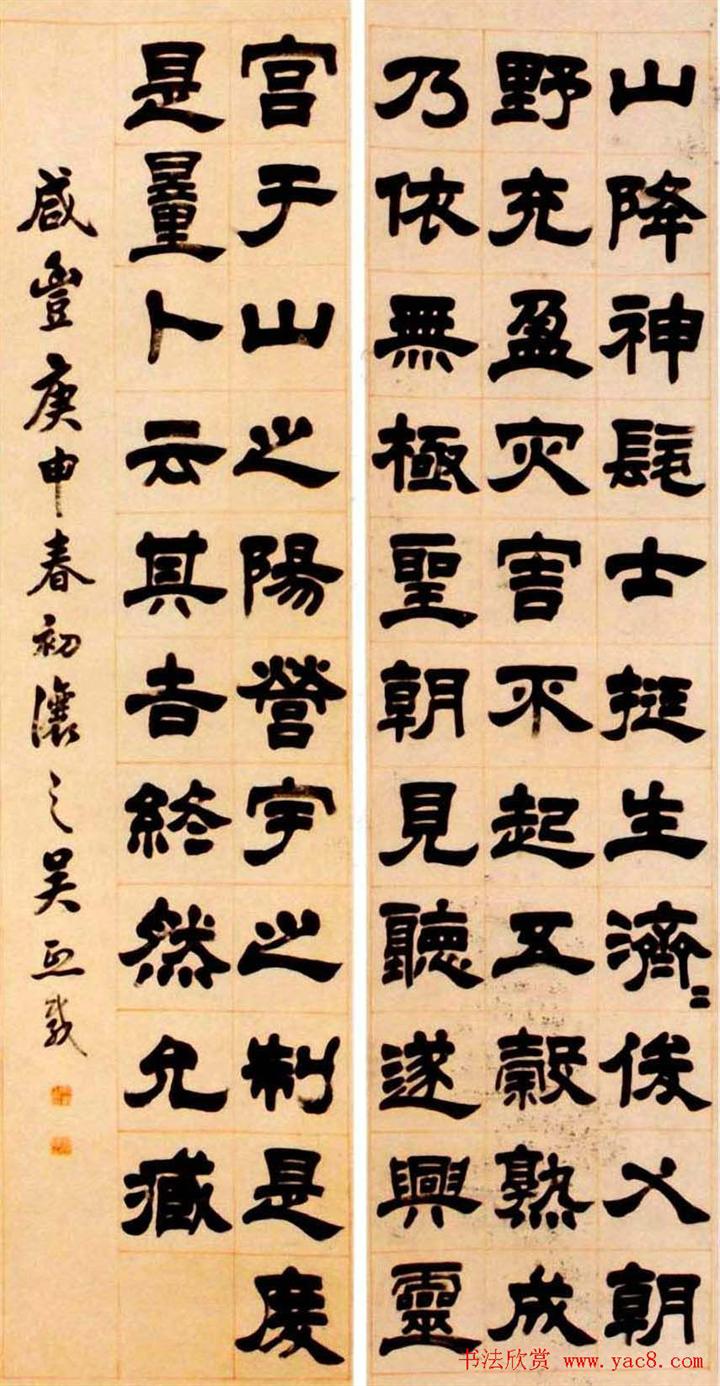 山降神髦士挺生濟〻俊乂朝
野充盈灾害不起五穀熟成
乃依無極聖朝見聽遂興靈
宫于山之陽營宇之制是度
是量卜云其吉終然允臧
咸豐庚申春初讓之吳熙載
书法欣赏 www.yac8.com